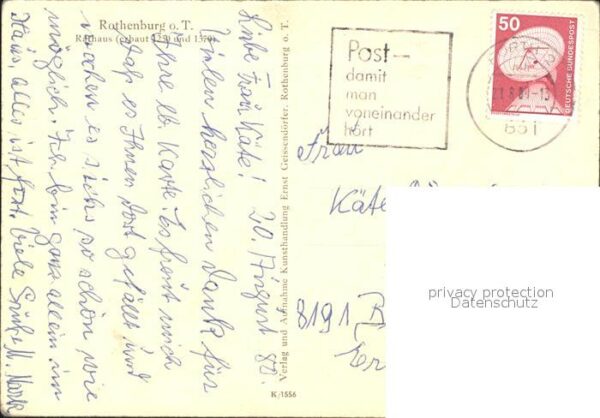 Rothenburg o. T.
Rathaus (erbaut 1250 und 1570)
Liebe Frau Käte! 20. August 80.
Vielen herzlichen Dank für
Ihre lb. Karte. Es freut mich
daß es Ihnen dort gefällt und
machen es sichs so schön wie
möglich. Ich bin ganz allein im
Haus, alles ist fort. Viele Grüße M.
Verlag und Aufnahme Kunsthandlung Ernst Geissendörfer, Rothenburg o. T.
K 1556
Post—
damit
man
voneinander
hört
50
DEUTSCHE BUNDESPOST
851
Frau
Käte
8191
privacy protection
Datenschutz